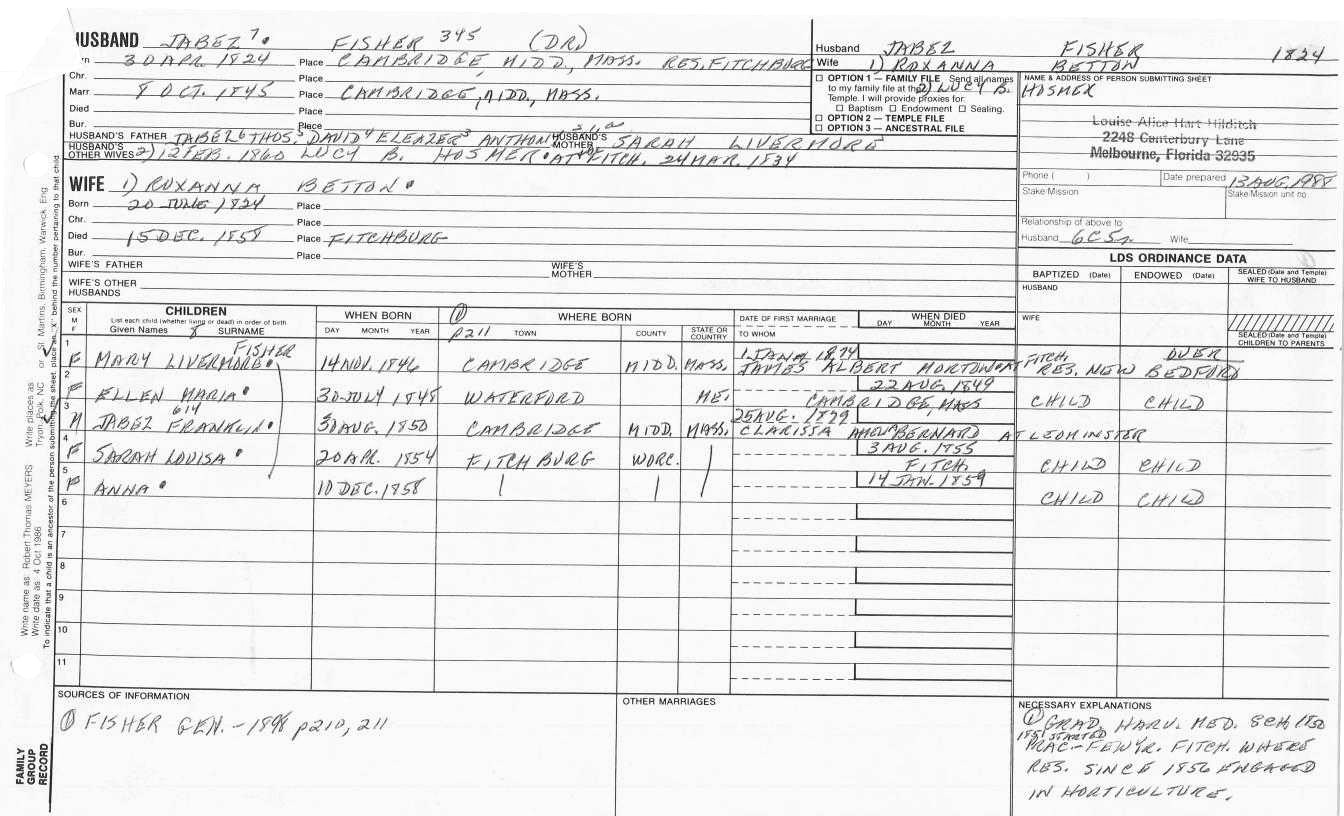 HUSBAND JABEZ 7. FISHER 345 (DR)
30 APR. 1824 Place CAMBRIDGE, MIDD., MASS. RES. FITCHBURG
Chr. Place
Marr 8 OCT. 1845 Place CAMBRIDGE, MIDD, MASS.
Died Place
Bur. Place
HUSBAND'S FATHER JABEZ 6 THOS. 5 DAVID 4 ELEAZER 3 HUSBAND'S MOTHER SARAH LIVERMORE
HUSBAND'S OTHER WIVES 2) 12 FEB. 1860 LUCY B. HOSMER AT FITCH. 24 MAR. 1834
Husband JABEZ FISHER 1824
Wife 1) ROXANNA BETTON
2) LUCY B. HOSMER
☐ OPTION 1 — FAMILY FILE Send all names
to my family file at the
Temple. I will provide proxies for
☐ Baptism ☐ Endowment ☐ Sealing.
☐ OPTION 2 — TEMPLE FILE
☐ OPTION 3 — ANCESTRAL FILE
NAME & ADDRESS OF PERSON SUBMITTING SHEET
Louise Alice Hart Hilditch
2248 Canterbury Lane
Melbourne, Florida 32935
Phone ( ) Date prepared 13 AUG, 1988
Stake/Mission Stake/Mission unit no.
Relationship of above to
Husband 6C5r Wife
WIFE 1) ROXANNA BETTON
Born 20 JUNE 1824 Place
Chr. Place
Died 15 DEC. 1858 Place FITCHBURG
Bur. Place
WIFE'S FATHER WIFE'S MOTHER
WIFE'S OTHER HUSBANDS
LDS ORDINANCE DATA
BAPTIZED (Date) ENDOWED (Date) SEALED (Date and Temple) WIFE TO HUSBAND
HUSBAND
WIFE
SEALED (Date and Temple) CHILDREN TO PARENTS
SEX M F
CHILDREN
List each child (whether living or dead) in order of birth
Given Names 8 SURNAME
WHEN BORN
DAY MONTH YEAR
① p211
WHERE BORN
TOWN COUNTY STATE OR COUNTRY
DATE OF FIRST MARRIAGE
TO WHOM
WHEN DIED
DAY MONTH YEAR
1 F MARY LIVERMORE FISHER 14 NOV. 1846 CAMBRIDGE MIDD. MASS. 1 JAN 1874
JAMES ALBERT MORTON AT FITCH. RES. NEW BEDFORD OVER
2 F ELLEN MARIA 30 JULY 1848 WATERFORD ME. 22 AUG, 1849
CAMBRIDGE, MASS CHILD CHILD
3 M JABEZ 614 FRANKLIN 30 AUG. 1850 CAMBRIDGE MIDD. MASS. 25 AUG. 1879
CLARISSA BERNARD AT LEOMINSTER
4 F SARAH LOUISA 20 APR. 1854 FITCHBURG WORC. 3 AUG. 1855
FITCH. CHILD CHILD
5 F ANNA 10 DEC. 1858 14 JAN. 1859
CHILD CHILD
6
7
8
9
10
11
SOURCES OF INFORMATION
① FISHER GEN. - 1898 p210, 211
OTHER MARRIAGES
NECESSARY EXPLANATIONS
① GRAD. HARV. MED. SCH, 1850
1851 STARTED
PRAC - FEW YR. FITCH. WHERE
RES. SINCE 1856 ENGAGED
IN HORTICULTURE.
Write name as: Robert Thomas MEYERS Write places as: Tryon, Polk, NC or St. Martins, Birmingham, Warwick, Eng.
Write date as: 4 Oct 1986
To indicate that a child is an ancestor of the person submitting the sheet, place an "X" behind the number pertaining to that child
FAMILY
GROUP
RECORD